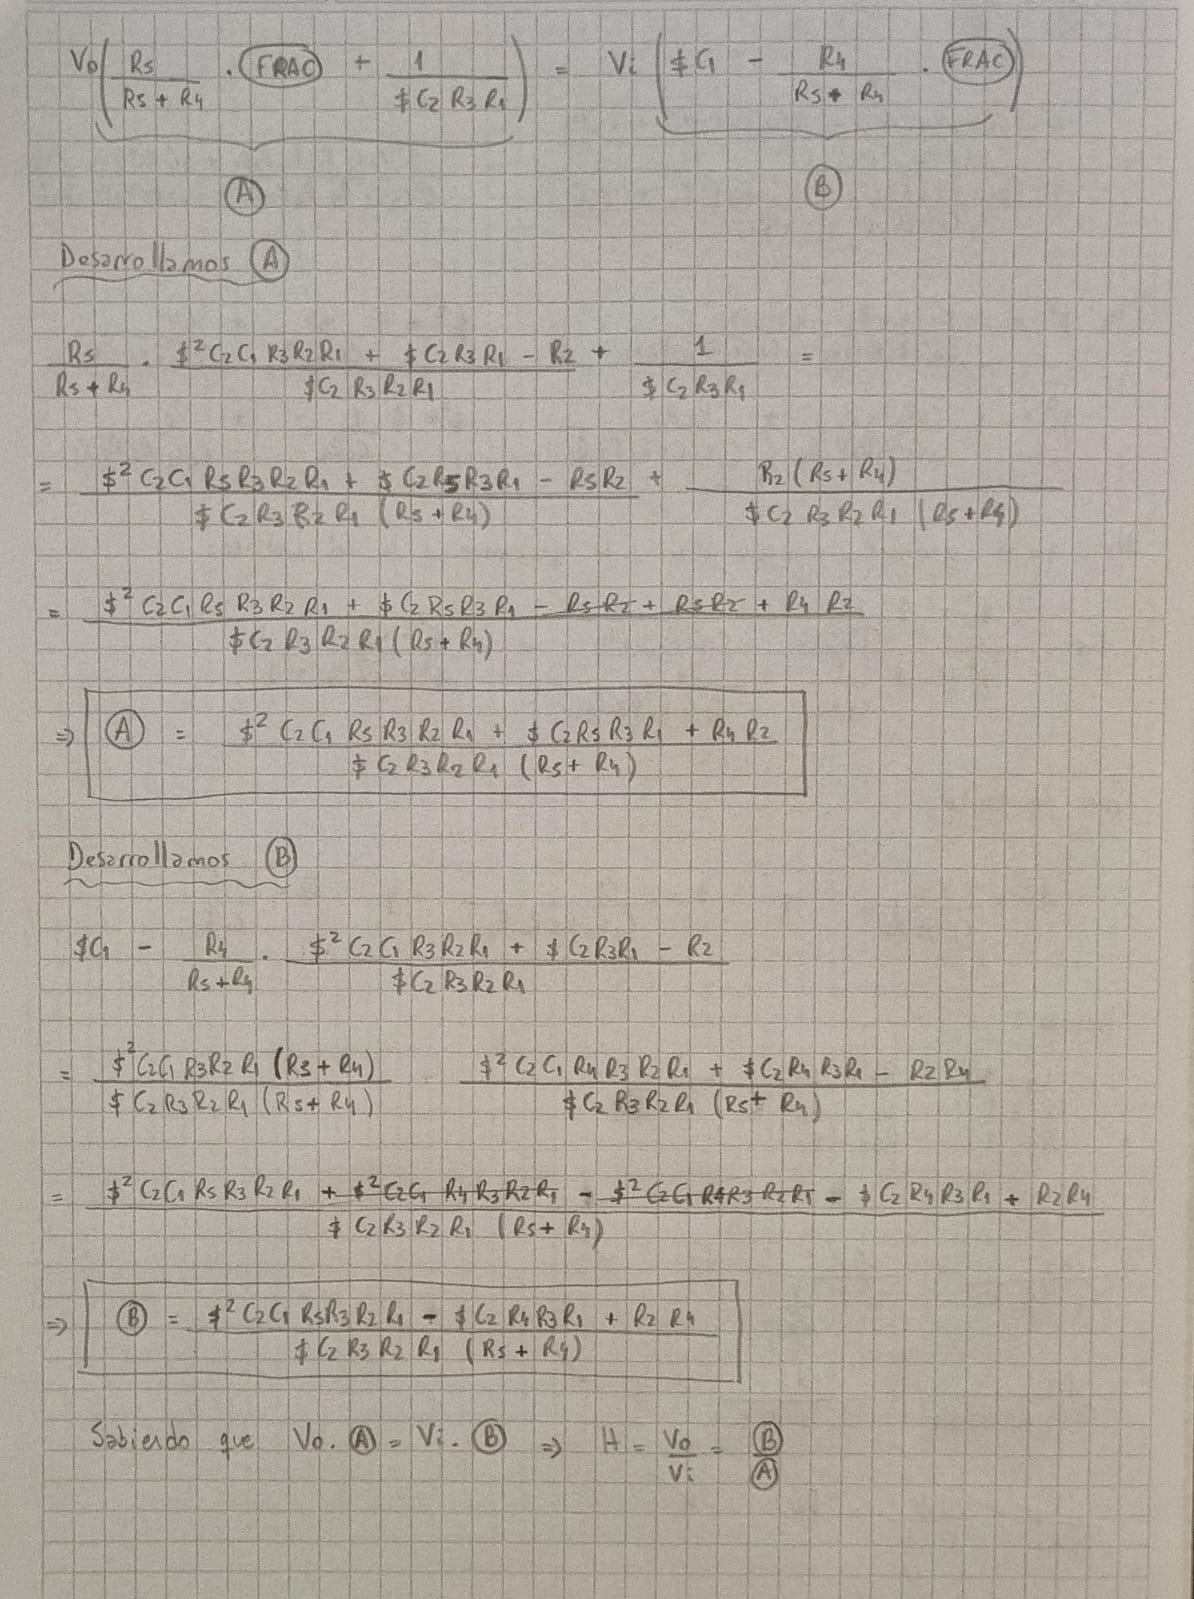 Vo( R5/(R5 + R4) . FRAC + 1/($ C2 R3 R1) ) = Vi ( $C1 - R4/(R5 + R4) . FRAC )
A B
Desarrollamos A
R5/(R5 + R4) . ($² C2 C1 R3 R2 R1 + $ C2 R3 R1 - R2)/($C2 R3 R2 R1) + 1/($ C2 R3 R1) =
= ($² C2 C1 R5 R3 R2 R1 + $ C2 R5 R3 R1 - R5 R2)/($ C2 R3 R2 R1 (R5 + R4)) + R2 (R5 + R4)/($ C2 R3 R2 R1 (R5 + R4))
= ($² C2 C1 R5 R3 R2 R1 + $ C2 R5 R3 R1 - R5 R2 + R5 R2 + R4 R2)/($ C2 R3 R2 R1 (R5 + R4))
⇒ A = ($² C2 C1 R5 R3 R2 R1 + $ C2 R5 R3 R1 + R4 R2)/($ C2 R3 R2 R1 (R5 + R4))
Desarrollamos B
$C1 - R4/(R5 + R4) . ($² C2 C1 R3 R2 R1 + $ C2 R3 R1 - R2)/($ C2 R3 R2 R1)
= $² C2 C1 R3 R2 R1 (R5 + R4)/($ C2 R3 R2 R1 (R5 + R4)) ($² C2 C1 R4 R3 R2 R1 + $ C2 R4 R3 R1 - R2 R4)/($ C2 R3 R2 R1 (R5 + R4))
= ($² C2 C1 R5 R3 R2 R1 + $² C2 C1 R4 R3 R2 R1 - $² C2 C1 R4 R3 R2 R1 - $ C2 R4 R3 R1 + R2 R4)/($ C2 R3 R2 R1 (R5 + R4))
⇒ B = ($² C2 C1 R5 R3 R2 R1 - $ C2 R4 R3 R1 + R2 R4)/($ C2 R3 R2 R1 (R5 + R4))
Sabiendo que Vo . A = Vi . B ⇒ H = Vo/Vi = B/A